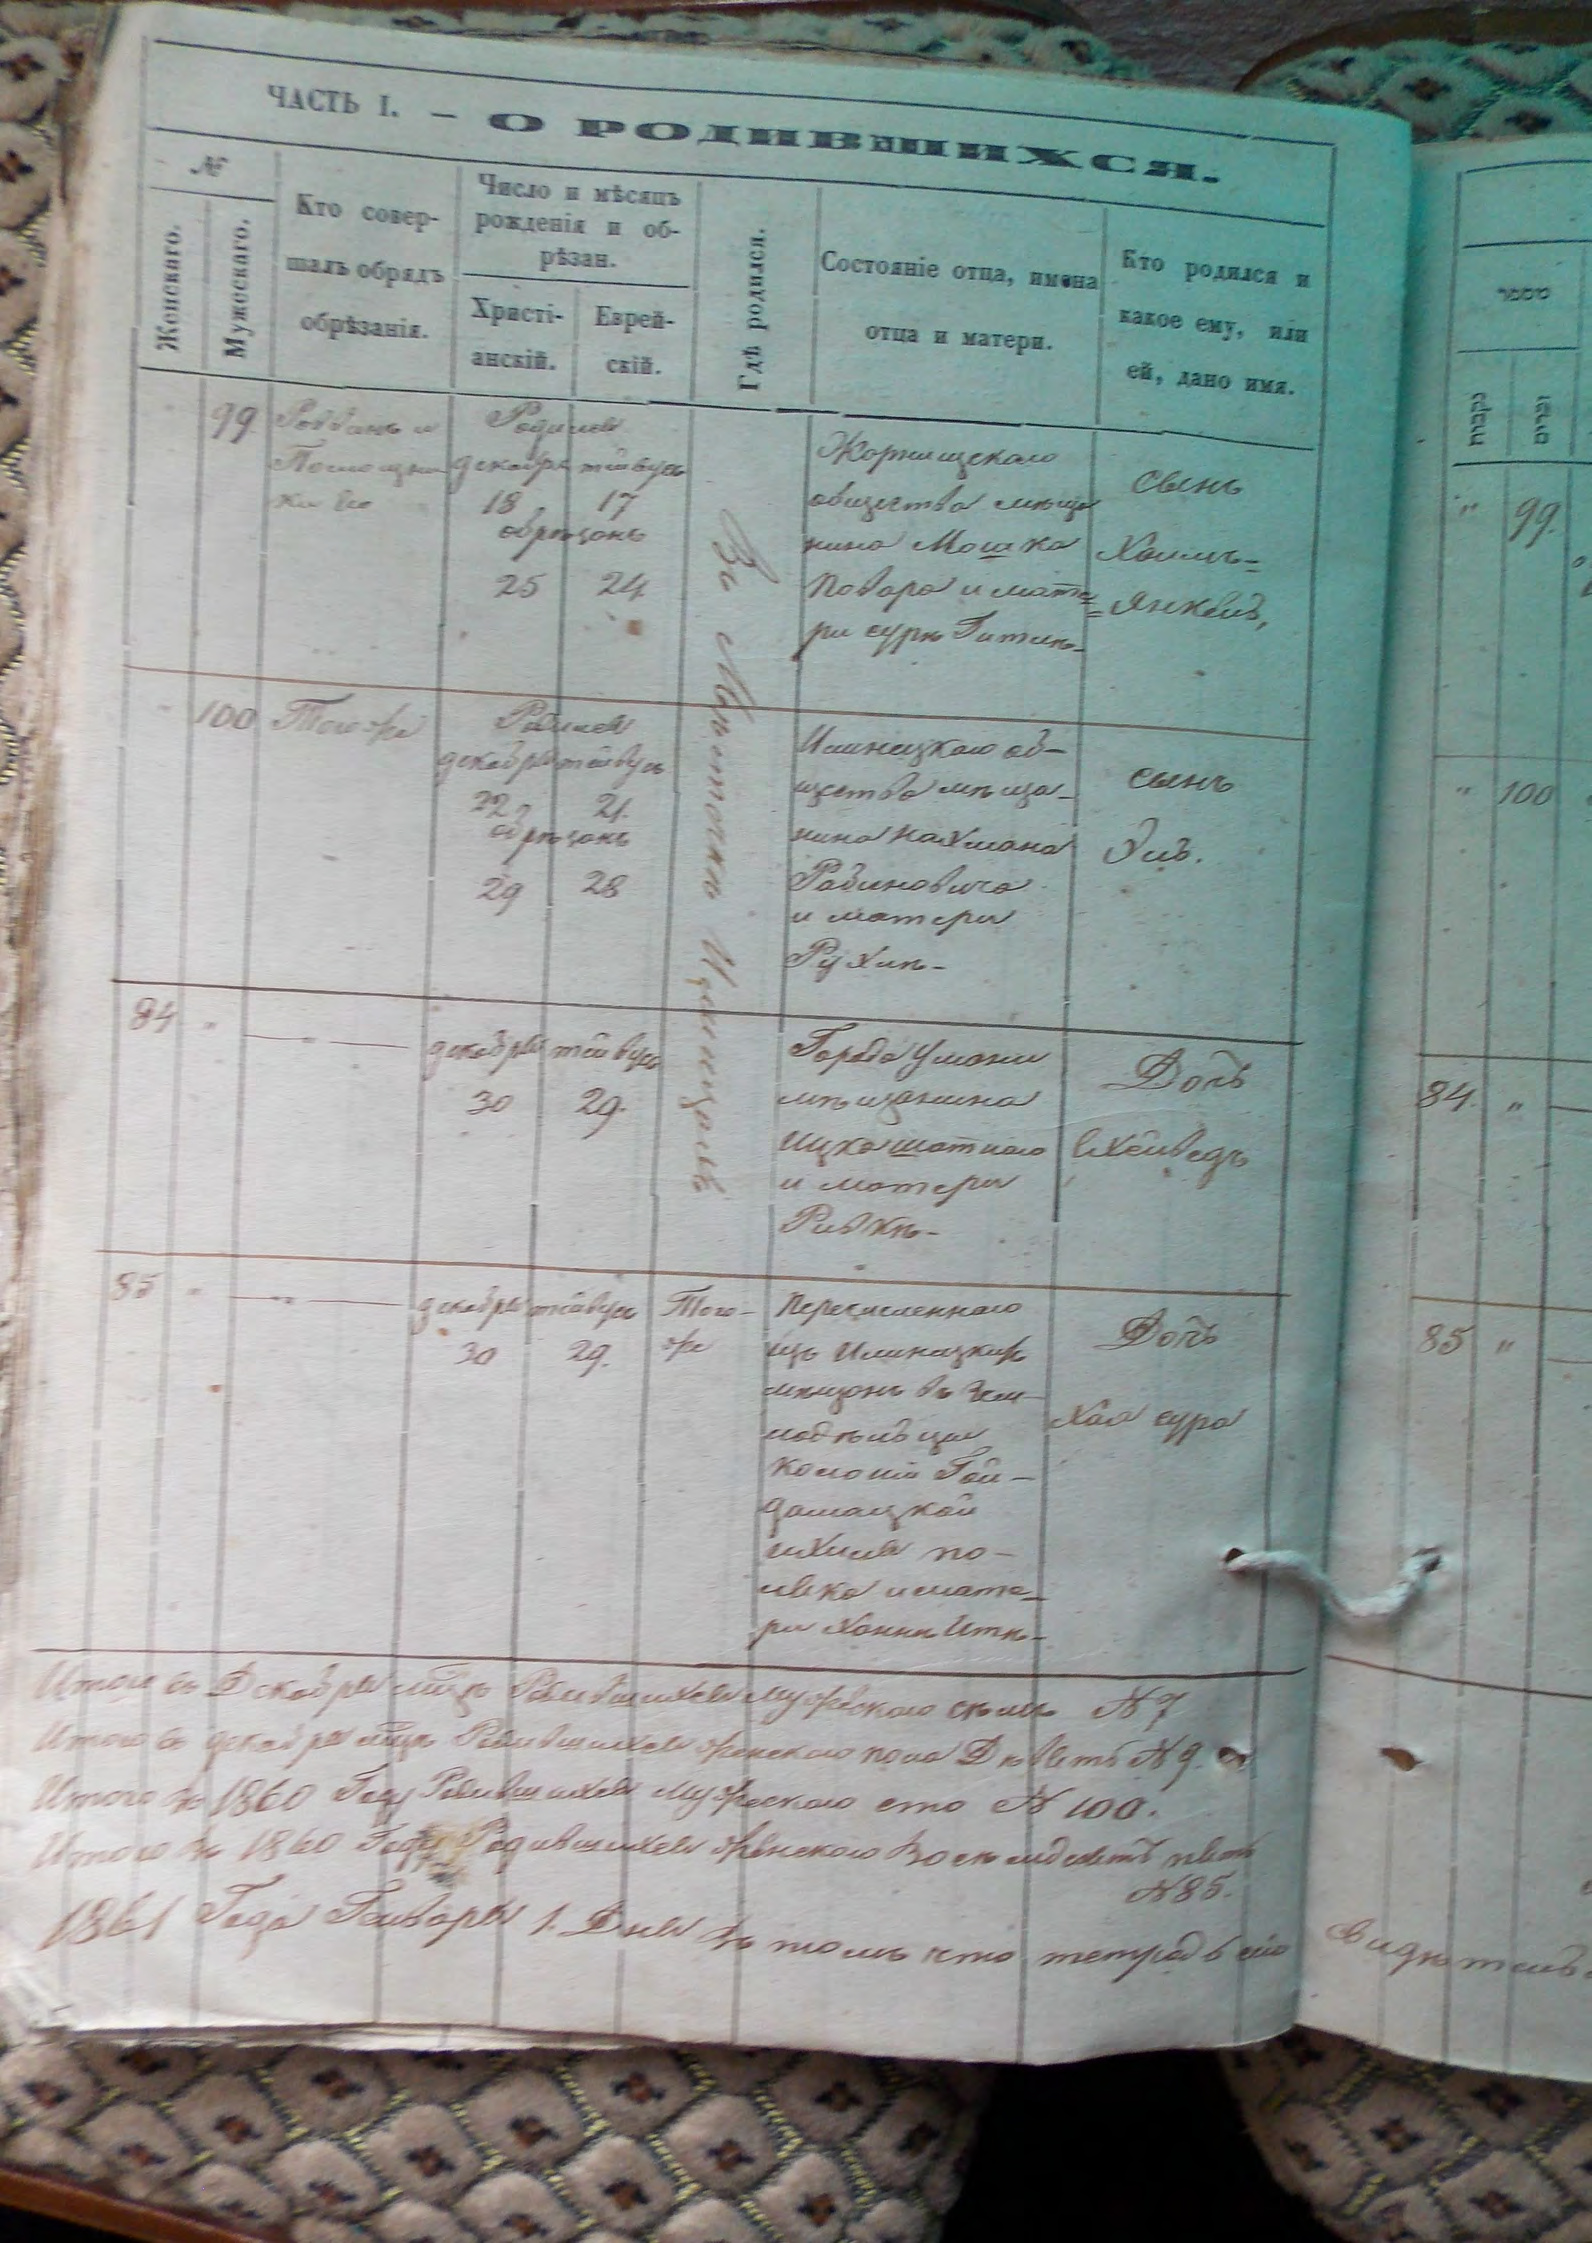 ЧАСТЬ I. — О РОДИВШИХСЯ.
№
Женскаго.
Мужескаго.
Кто совер-
шалъ обрядъ
обрѣзанія.
Число и мѣсяцъ
рожденія и об-
рѣзан.
Христі-
анскій.
Еврей-
скій.
Гдѣ родился.
Состояніе отца, имена
отца и матери.
Кто родился и
какое ему, или
ей, дано имя.
99
Раввинъ и
Помощни
ки его
Родился
декабря тейвусъ
18 17
обрѣзанъ
25 24
Въ Мѣстечкѣ
Жорнищскаго
общества мѣща
нина Мошка
Повара и мате
ри сури Гитли-
Сынъ
Хаимъ=
=Янкель,
100
Того-же
Родился
декабря тейвусъ
22 21.
обрѣзанъ
29 28
Илинецкаго об-
щества мѣща-
нина Нахмана
Рабиновича
и матери
Рухли-
сынъ
84 "
декабря тейвусъ
30 29.
Города Умани
мѣщанина
Ицка
и матери
Ривки-
Дочь
85 "
декабря тейвусъ
30 29.
Того-
же
Перечисленнаго
изъ Илинецкихъ
мѣщанъ въ Зем-
ледѣльцы
колоніи Гай-
дамацкой
по-
и мате-
ри Ханни Итти-
Дочь
Хая сура
Итого въ Декабрѣ мѣсцѣ Родившихся мужескаго семь № 7
Итого въ декабрѣ мѣсцѣ Родившихся женскаго пола Девять № 9.
Итого въ 1860 Году Родившихся Мужескаго сто № 100.
Итого въ 1860 Году Родившихся женскаго Восемдесятъ пять
№ 85.
1861 Года Генваря 1. Дня въ томъ что тетрадь сію
מספר
נקבות
זכרים
" 99.
" 100
84. "
85 "